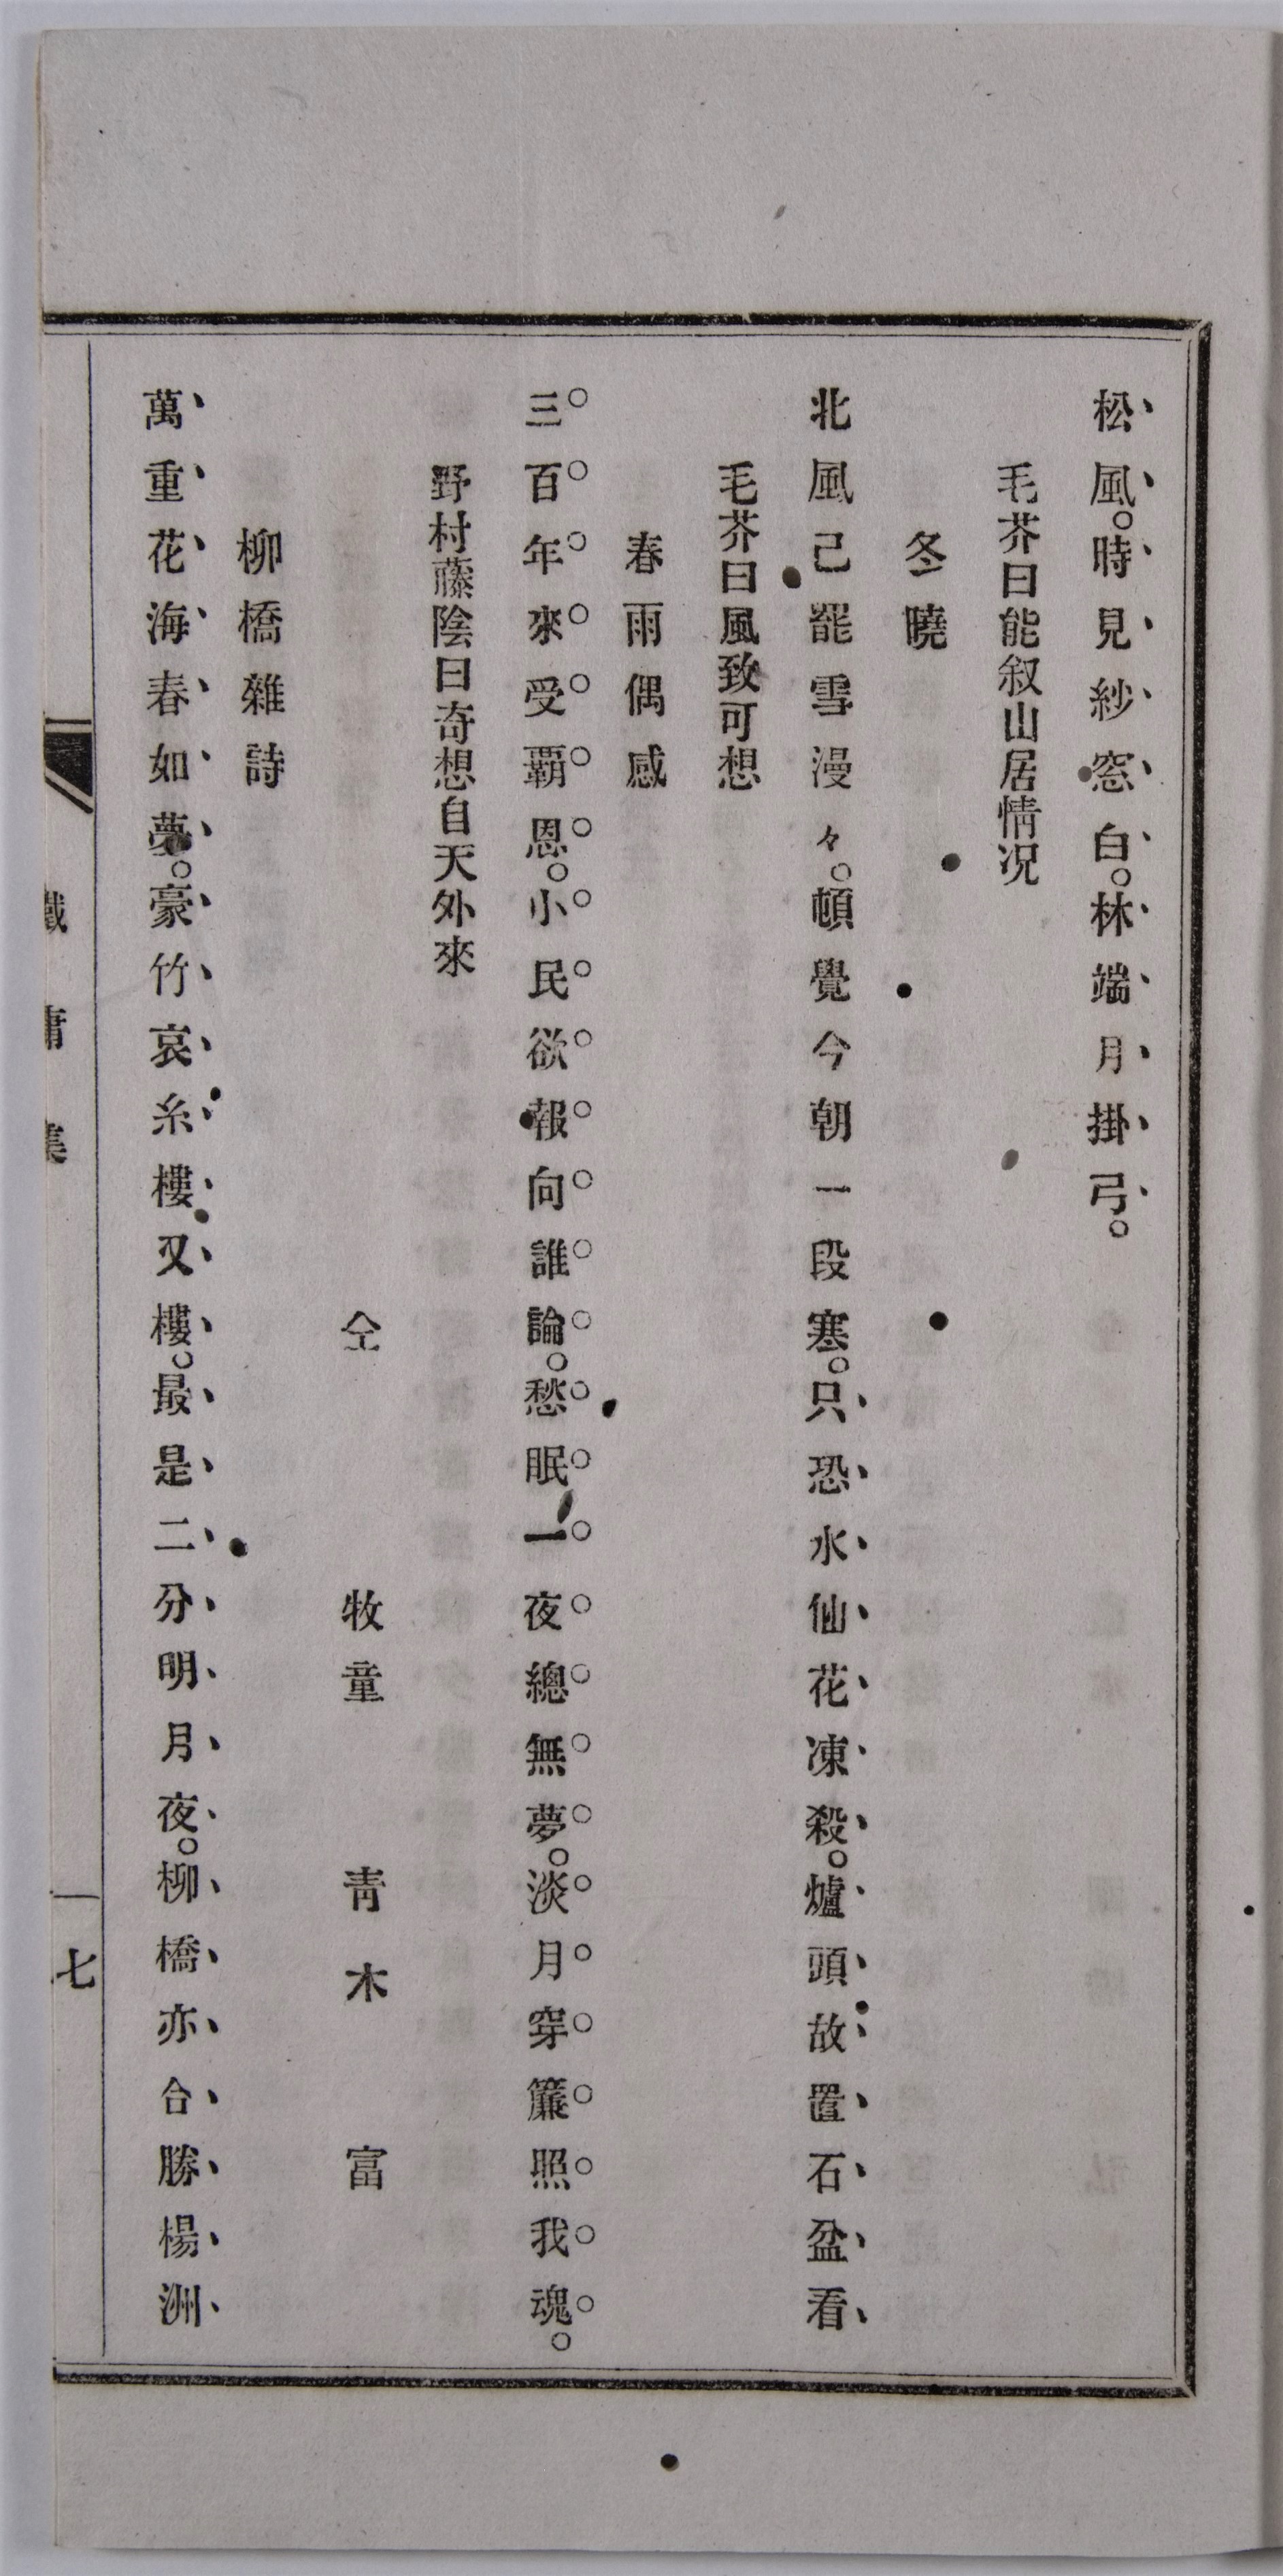 松風。時見紗窓白。林端月掛弓。
毛芥曰能叙山居情况
冬曉
北風已罷雪漫々。頓覺今朝一段寒。只恐水仙花凍殺。爐頭故置石盆看
毛芥曰風致可想
春雨偶感
三百年來受覇恩。小民欲報向誰論。愁眠一夜總無夢。淡月穿簾照我魂。
野村藤陰曰奇想自天外來
仝 牧童 靑木 富
柳橋雜詩
萬重花海春如夢。豪竹哀糸樓又樓。最是二分明月夜。柳橋亦合勝楊洲
七